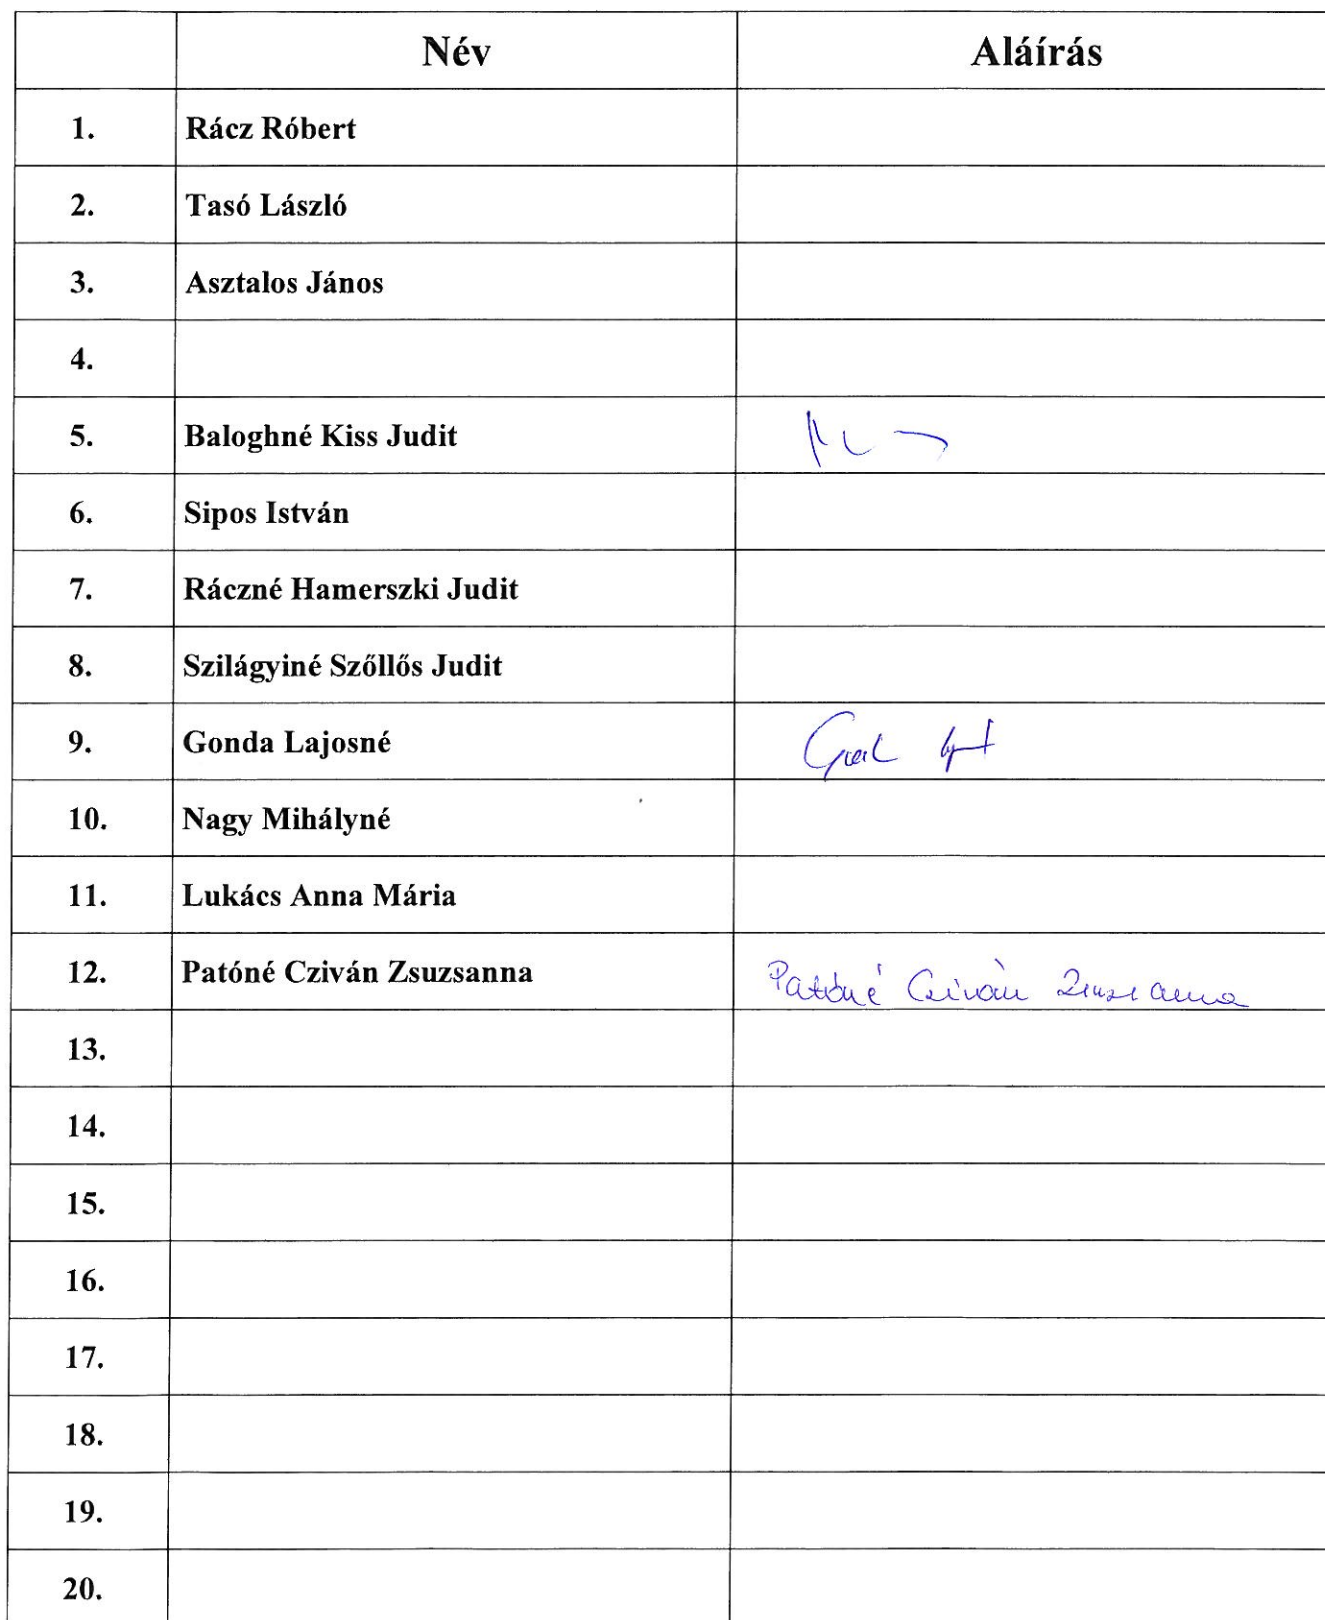 Név Aláírás
1. Rácz Róbert
2. Tasó László
3. Asztalos János
4.
5. Baloghné Kiss Judit
6. Sipos István
7. Ráczné Hamerszki Judit
8. Szilágyiné Szőllős Judit
9. Gonda Lajosné
10. Nagy Mihályné
11. Lukács Anna Mária
12. Patóné Cziván Zsuzsanna Patóné Cziván Zsuzsanna
13.
14.
15.
16.
17.
18.
19.
20.